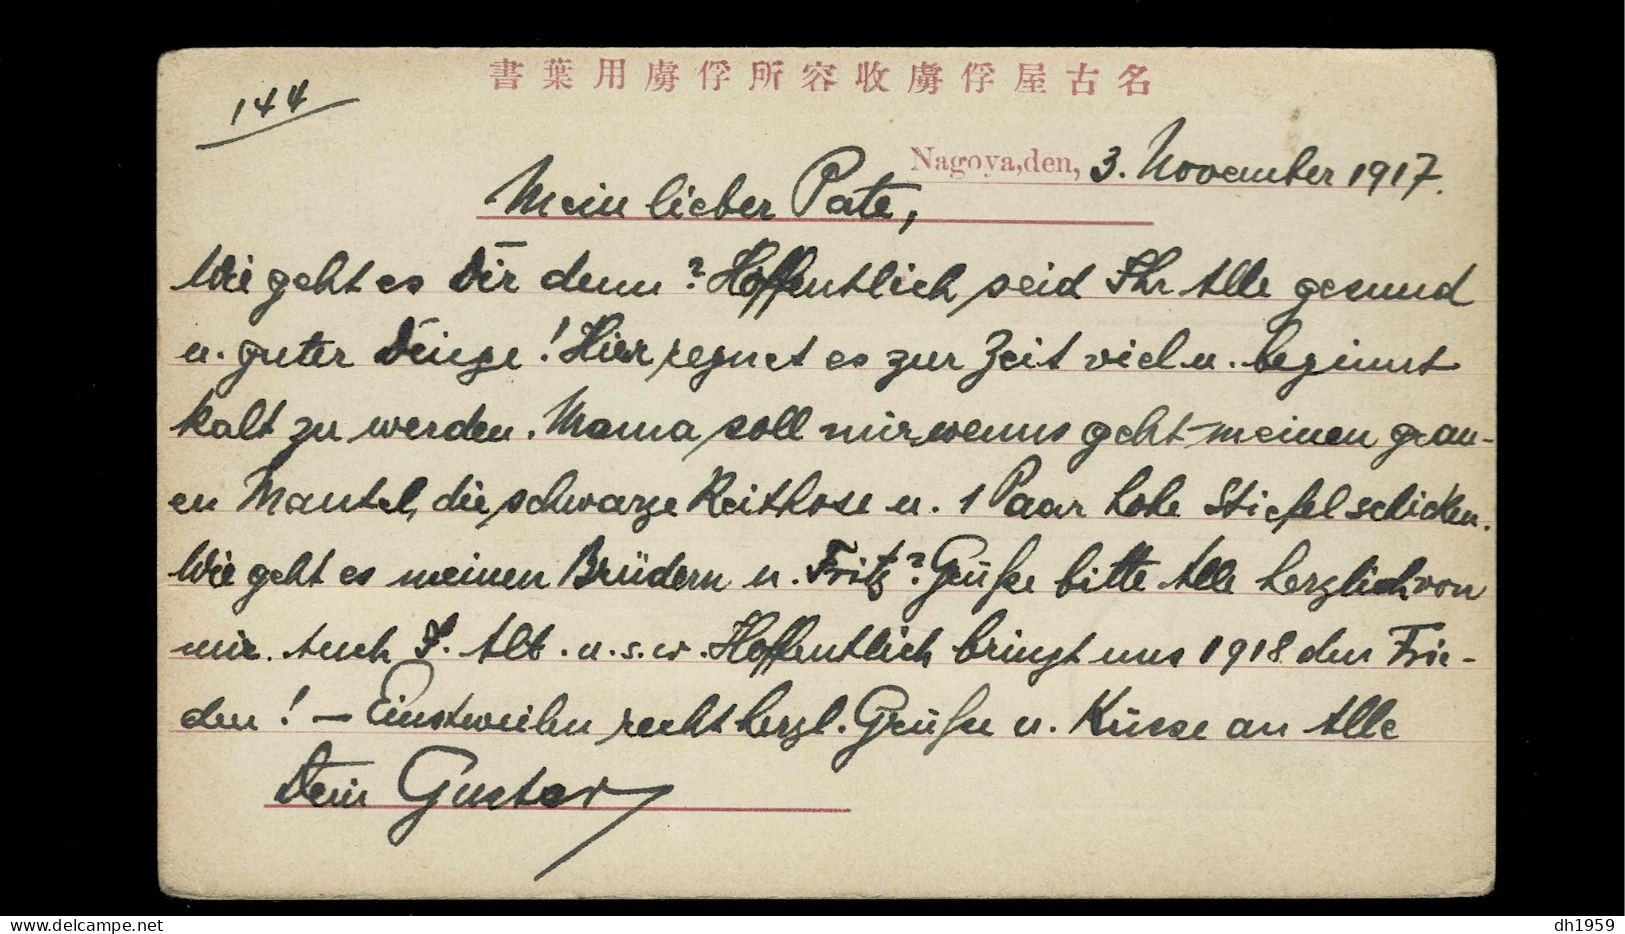 書葉用虜俘所容收虜俘屋古名
144
Nagoya, den, 3. November 1917.
Mein lieber Pate,
Wie geht es Dir denn? Hoffentlich seid Ihr Alle gesund
u. guter Dinge! Hier regnet es zur Zeit viel u. beginnt
kalt zu werden. Mama soll mir wenns geht meinen grau-
en Mantel, die schwarze Reithose u. 1 Paar hohe Stiefel schicken.
Wie geht es meinen Brüdern u. Fritz? Grüße bitte Alle herzlich von
mir. Auch F. Alb. u.s.w. Hoffentlich bringt uns 1918 den Frie-
den! — Einstweilen recht herzl. Grüße u. Küsse an Alle
Dein Gustav
www.delcampe.net
dh1959